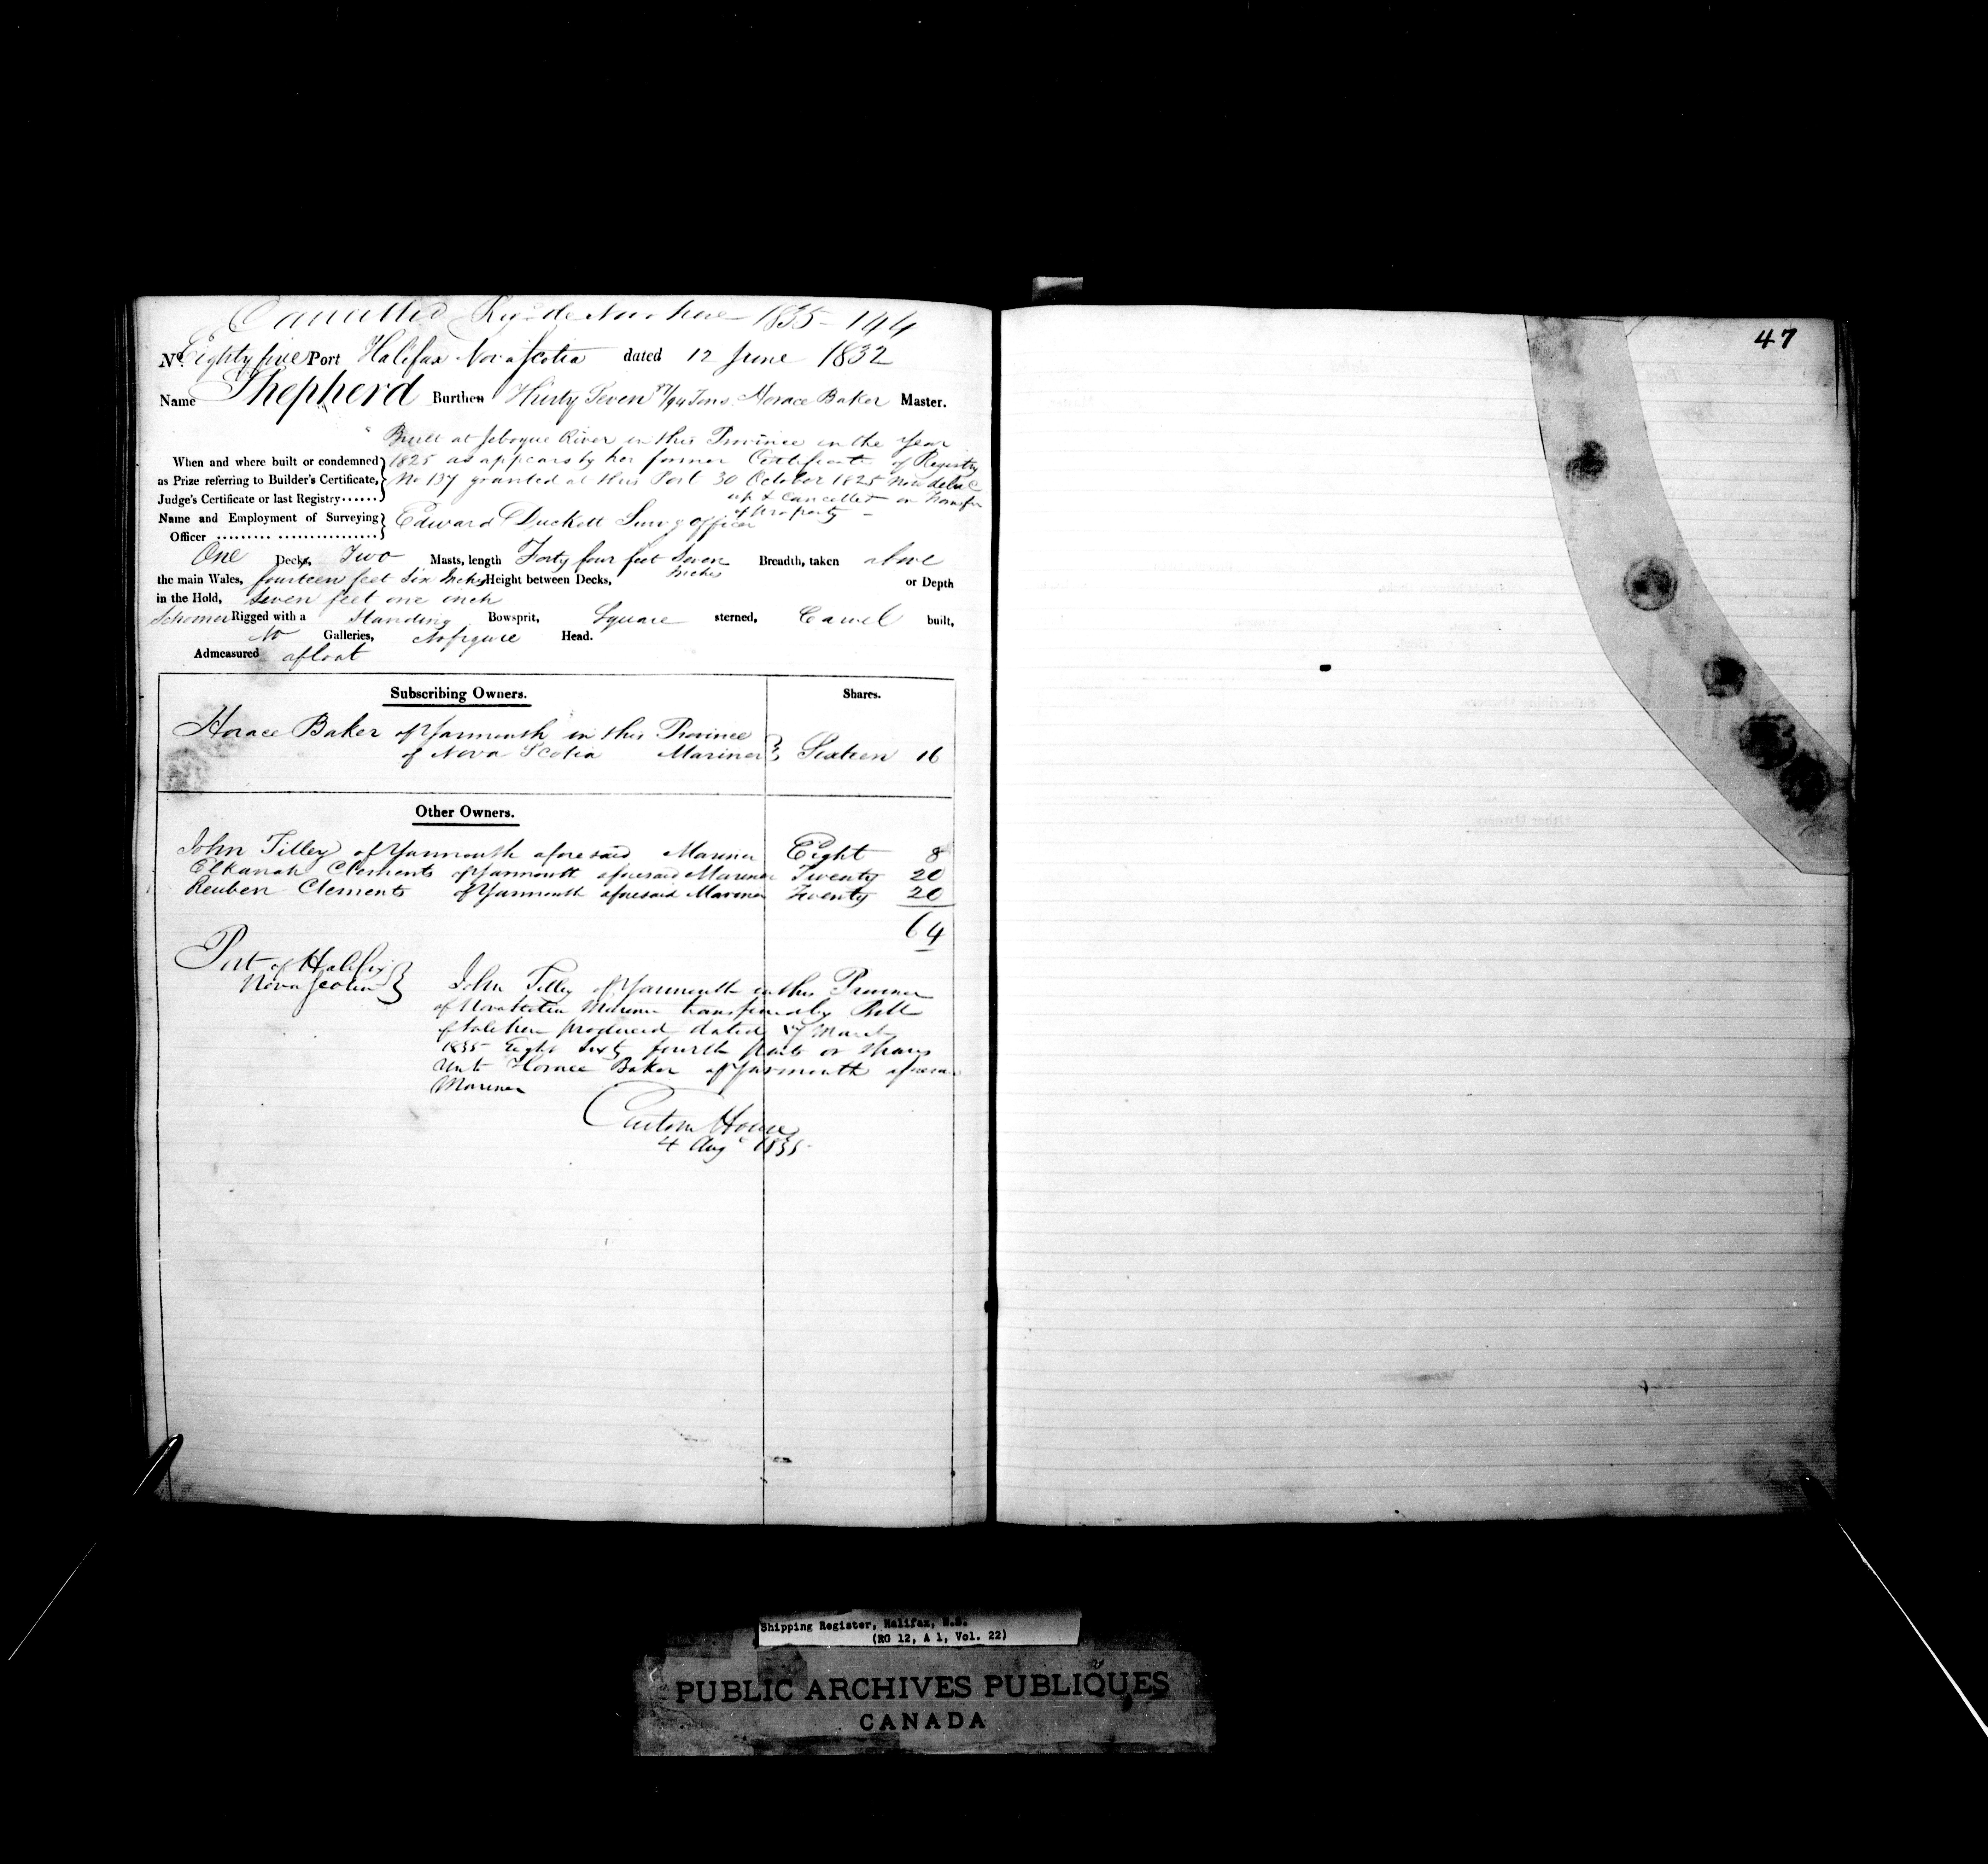 Cancelled Reg: de Novo here 1835 - 144
No. Eighty five Port Halifax Nova Scotia dated 12 June 1832
Name Shepherd Burthen Thirty Seven 87/94 Tons. Horace Baker Master.
Built at Jebogue River in this Province in the Year
When and where built or condemned 1825 as appears by her former Certificate of Registry
as Prize referring to Builder's Certificate, No 137 granted at this Port 30 October 1825 Now
Judge's Certificate or last Registry ...... up & Cancelled on Transfer
of Property -
Name and Employment of Surveying Edward Duckett Survg officer
Officer ......... ................
One Decks, Two Masts, length Forty four feet Seven Inches Breadth, taken above
the main Wales, fourteen feet Six Inches Height between Decks, or Depth
in the Hold, Seven feet one inch
Schooner Rigged with a Standing Bowsprit, Square sterned, Carvel built,
No Galleries, No figure Head.
Admeasured afloat
Subscribing Owners. Shares.
Horace Baker of Yarmouth in this Province
of Nova Scotia Mariner Sixteen 16
Other Owners.
John Tilley of Yarmouth aforesaid Mariner Eight 8
Elkanah Clements of Yarmouth aforesaid Mariner Twenty 20
Reuben Clements of Yarmouth aforesaid Mariner Twenty 20
64
Port of Halifax
Nova Scotia
John Tilley of Yarmouth in this Province
of Nova Scotia Mariner transferred by Bill
of Sale here produced dated 17 March
1835 Eight Sixty fourth parts or Shares
Unto Horace Baker of Yarmouth
Mariner
Custom House
4 Augt 1835
47
Shipping Register, Halifax, N.S.
(RG 12, A 1, Vol. 22)
PUBLIC ARCHIVES PUBLIQUES
CANADA